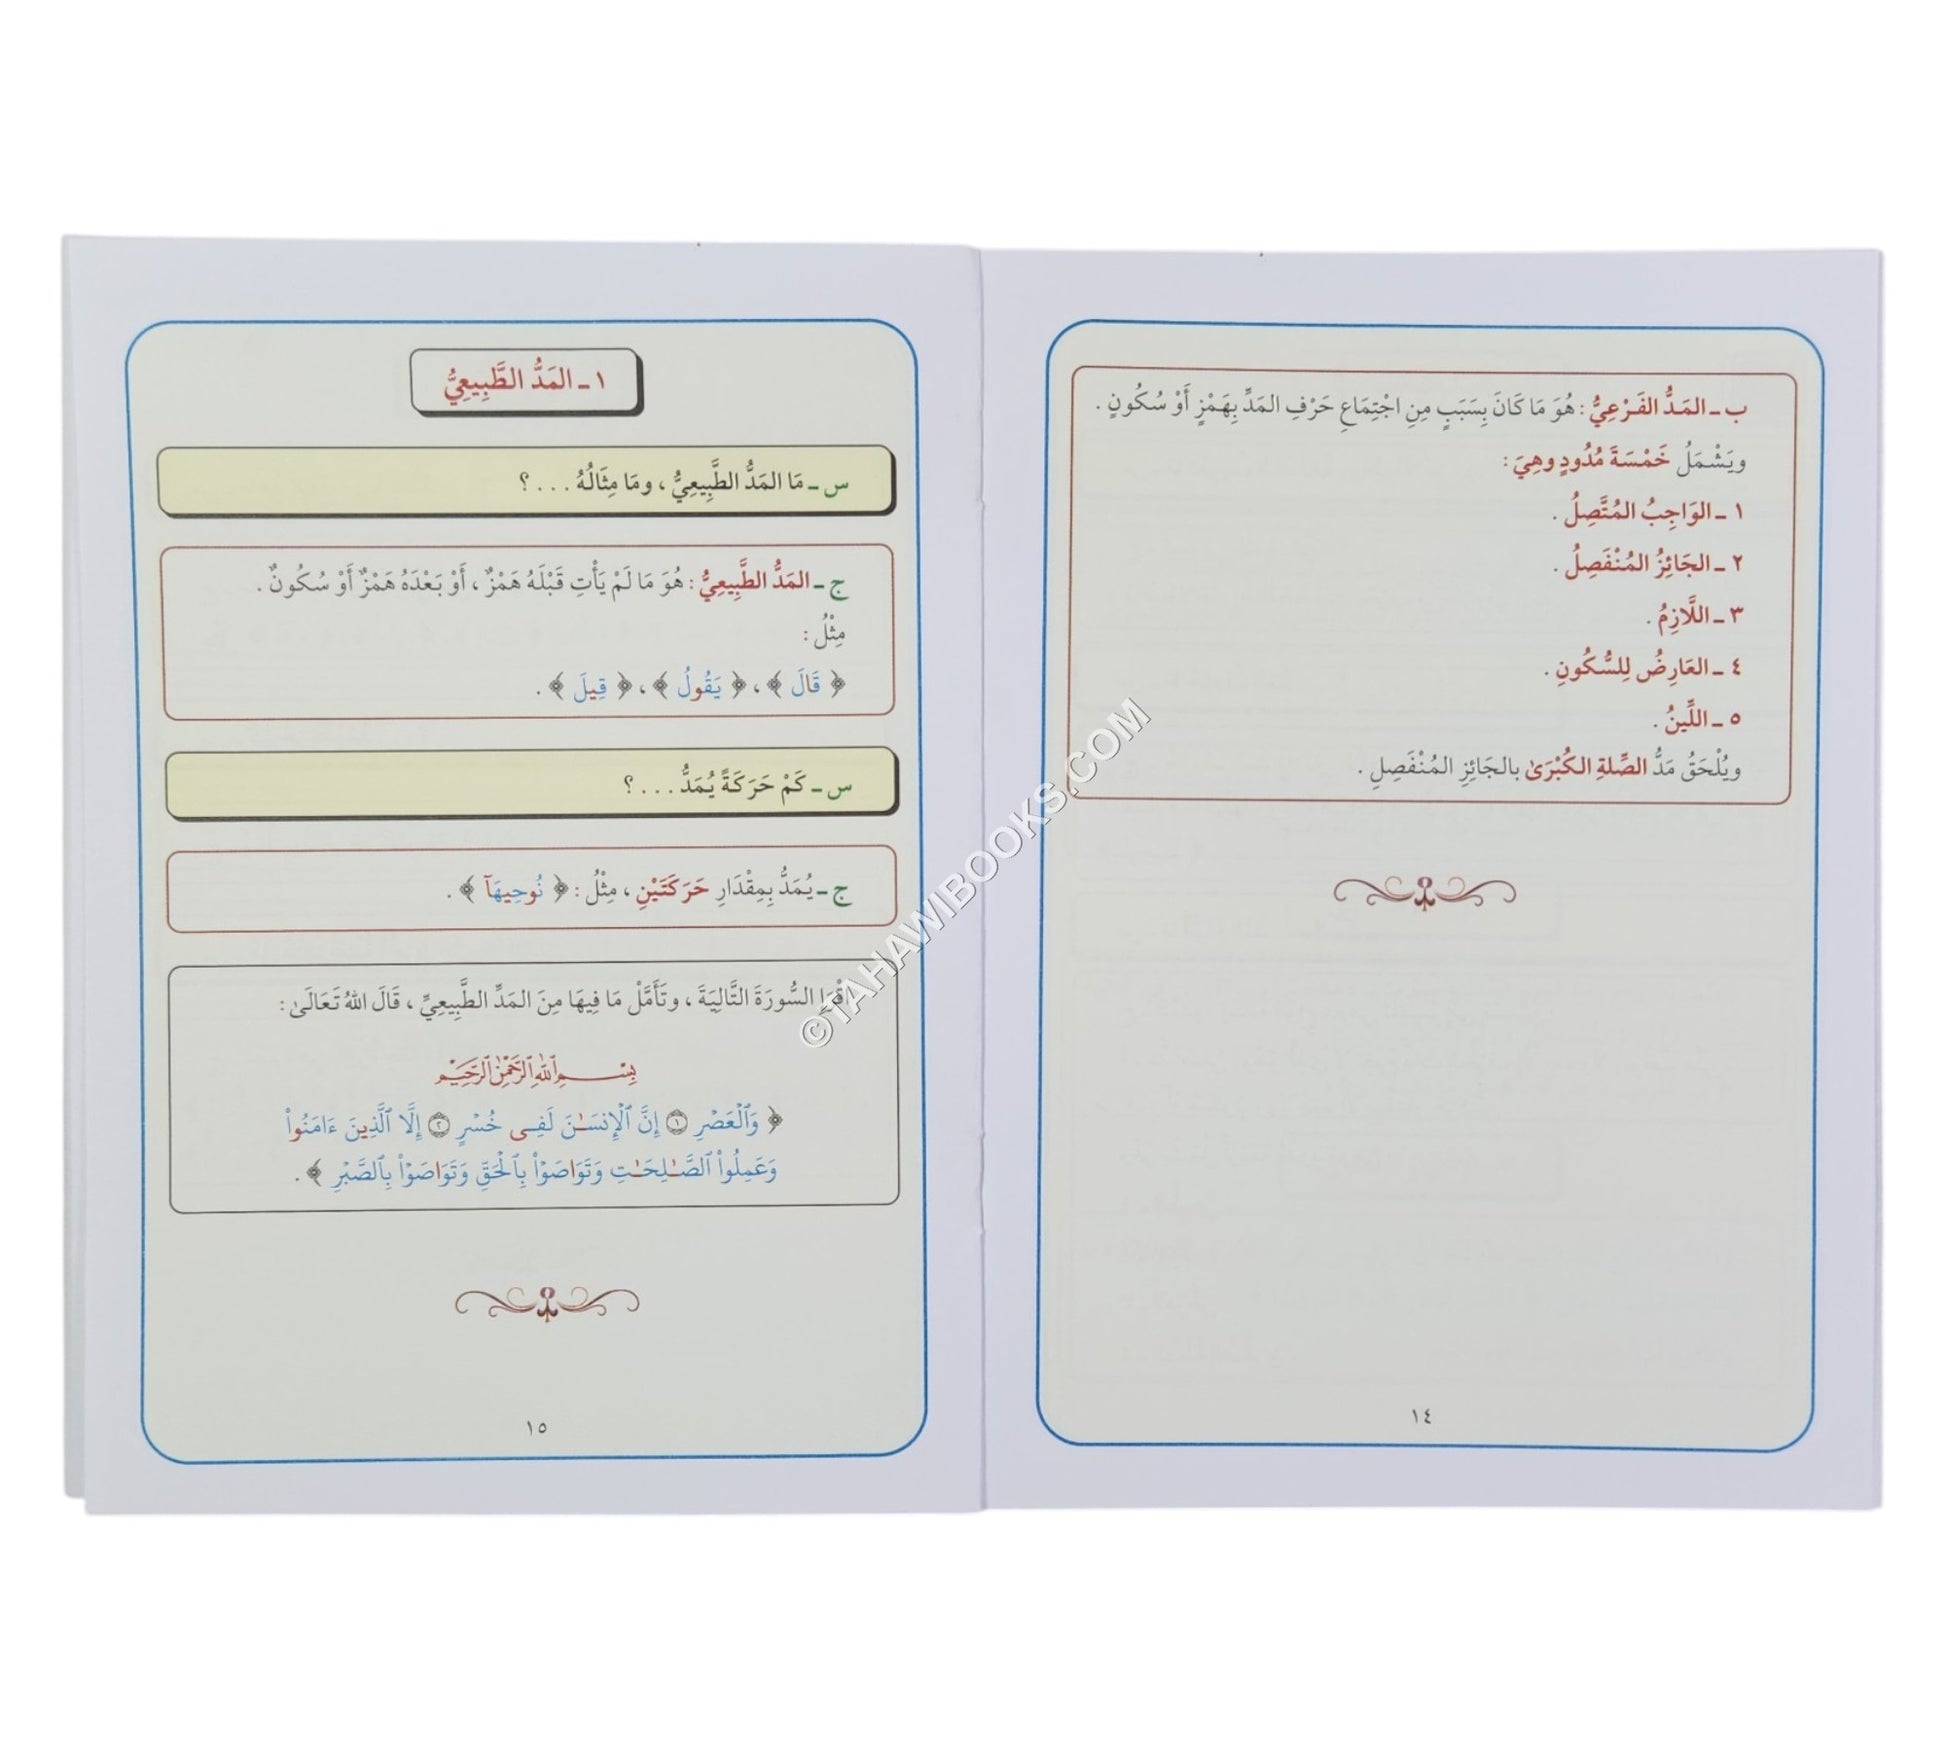 ب ـ المَدُّ الفَرْعِيُّ : هُوَ مَا كَانَ بِسَبَبٍ مِنِ اجْتِمَاعِ حَرْفِ المَدِّ بِهَمْزٍ أَوْ سُكُونٍ .
ويَشْمَلُ خَمْسَةَ مُدُودٍ وهِيَ :
١ ـ الوَاجِبُ المُتَّصِلُ .
٢ ـ الجَائِزُ المُنْفَصِلُ .
٣ ـ اللَّازِمُ .
٤ ـ العَارِضُ لِلسُّكُونِ .
٥ ـ اللِّينُ .
ويُلْحَقُ مَدُّ الصِّلةِ الكُبْرَىٰ بالجَائِزِ المُنْفَصِلِ .
١٤
١ ـ المَدُّ الطَّبِيعِيُّ
س ـ مَا المَدُّ الطَّبِيعِيُّ ، ومَا مِثَالُهُ . . . ؟
ج ـ المَدُّ الطَّبِيعِيُّ : هُوَ مَا لَمْ يَأْتِ قَبْلَهُ هَمْزٌ ، أَوْ بَعْدَهُ هَمْزٌ أَوْ سُكُونٌ .
مِثْلُ :
﴿ قَالَ ﴾ ، ﴿ يَقُولُ ﴾ ، ﴿ قِيلَ ﴾ .
س ـ كَمْ حَرَكَةً يُمَدُّ . . . ؟
ج ـ يُمَدُّ بِمِقْدَارِ حَرَكَتَيْنِ ، مِثْلُ : ﴿ نُوحِيهَآ ﴾ .
اقْرَإِ السُّورَةَ التَّالِيَةَ ، وتَأَمَّلْ مَا فِيهَا مِنَ المَدِّ الطَّبِيعِيِّ ، قَالَ اللهُ تَعَالَىٰ :
بِسْمِ ٱللَّهِ ٱلرَّحْمَٰنِ ٱلرَّحِيمِ
﴿ وَٱلْعَصْرِ ١ إِنَّ ٱلْإِنسَـٰنَ لَفِى خُسْرٍ ٢ إِلَّا ٱلَّذِينَ ءَامَنُوا۟
وَعَمِلُوا۟ ٱلصَّـٰلِحَـٰتِ وَتَوَاصَوْا۟ بِٱلْحَقِّ وَتَوَاصَوْا۟ بِٱلصَّبْرِ ﴾ .
١٥
©TAHAWIBOOKS.COM